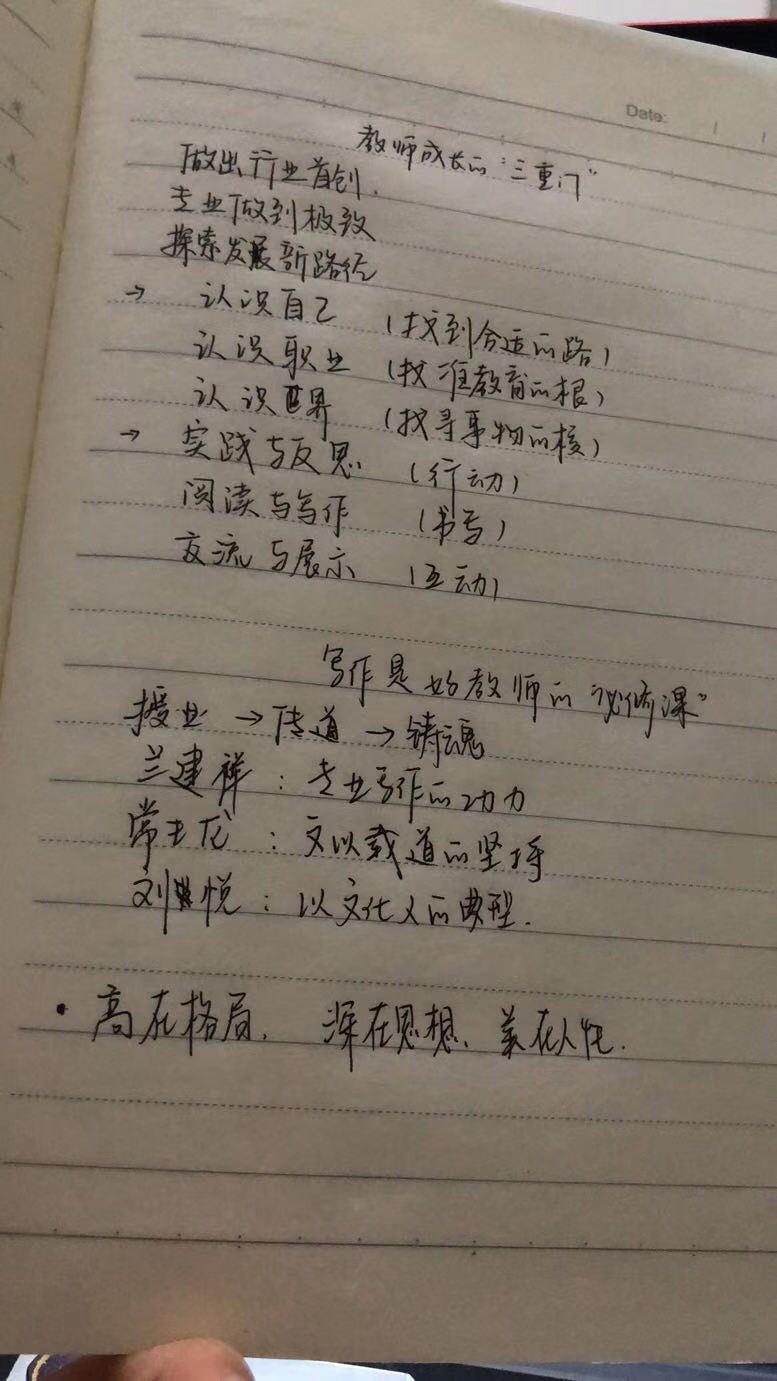 Date:
教师成长的“三重门”
做出行业首创.
专业做到极致
探索发展新路径
→ 认识自己 (找到合适的路)
认识职业 (找准教育的根)
认识世界 (找寻事物的核)
→ 实践与反思 (行动)
阅读与写作 (书写)
交流与展示 (互动)
写作是好教师的“必修课”
授业→传道→铸魂
兰建祥：专业写作的功力
常生龙：文以载道的坚持
刘悦：以文化人的典型.
·高在格局. 深在思想. 美在人性.